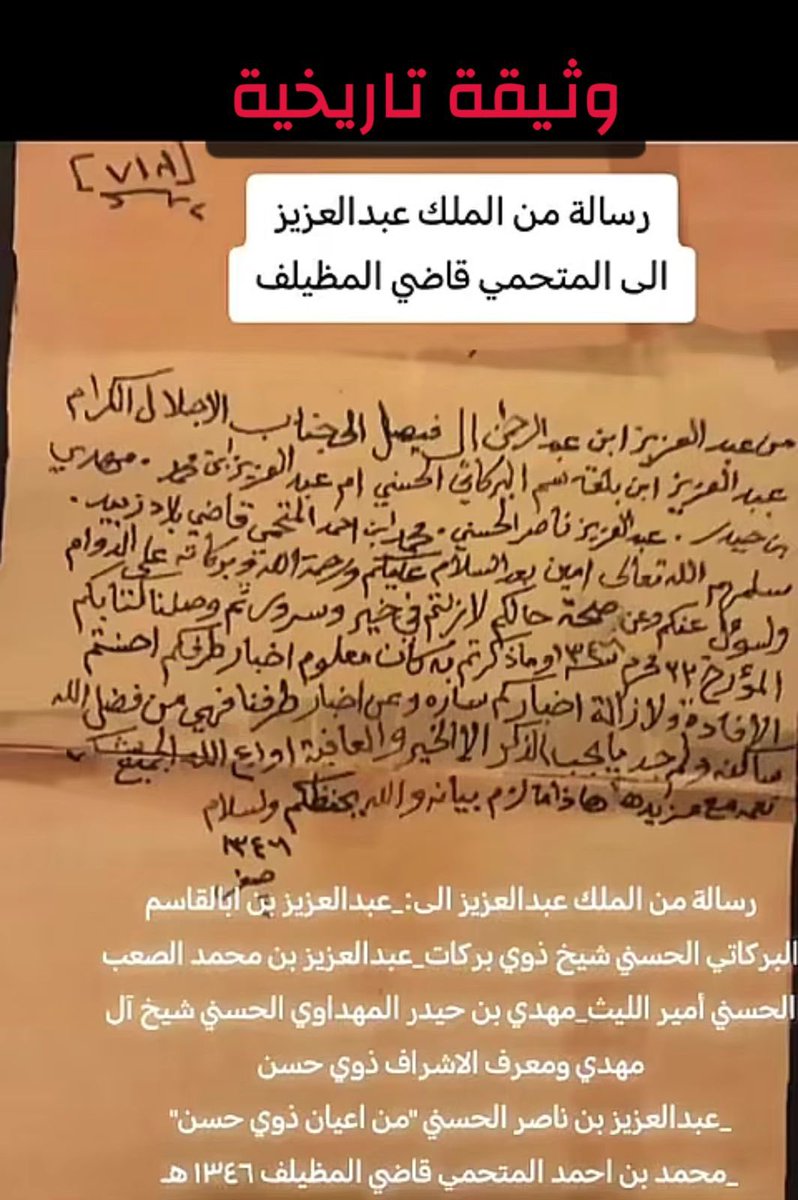 وثيقة تاريخية
[٧١٨]
رسالة من الملك عبدالعزيز
الى المتحمي قاضي المظيلف
من عبد العزيز ابن عبد الرحمن ال فيصل الى جناب الاجلال الكرام
عبد العزيز ابن بلقاسم البركاتي الحسني ام عبد العزيز ابن محمد . مهدي
بن حيدر . عبد العزيز ناصر الحسني . محمد ابن احمد المتحمي قاضي بلاد زبيد .
سلمهم الله تعالى امين بعد السلام عليكم ورحمة الله وبركاته على الدوام
ولسول عنكم وعن صحة حالكم لازلتم في خير وسرور ثم وصلنا كتابكم
المؤرخ ٢٣ محرم سنة ١٣٤٦ وما ذكرتم به كان معلوم اخبار طرفكم احسنتم
الافادة ولازالة اخباركم ساره وعن اخبار طرفنا فهي من فضل الله
ساكنه ولم جد يا يجب الذكر الا الخير والعافية اوزاع الله الجميع شكر
نعمه مع مزيدها هاذا ما لزم بيانه والله يحفظكم ولسلام
١٣٤٦
صفر
رسالة من الملك عبدالعزيز الى:_عبدالعزيز بن ابالقاسم
البركاتي الحسني شيخ ذوي بركات_عبدالعزيز بن محمد الصعب
الحسني أمير الليث_مهدي بن حيدر المهداوي الحسني شيخ آل
مهدي ومعرف الاشراف ذوي حسن
_عبدالعزيز بن ناصر الحسني "من اعيان ذوي حسن"
_محمد بن احمد المتحمي قاضي المظيلف ١٣٤٦ هـ